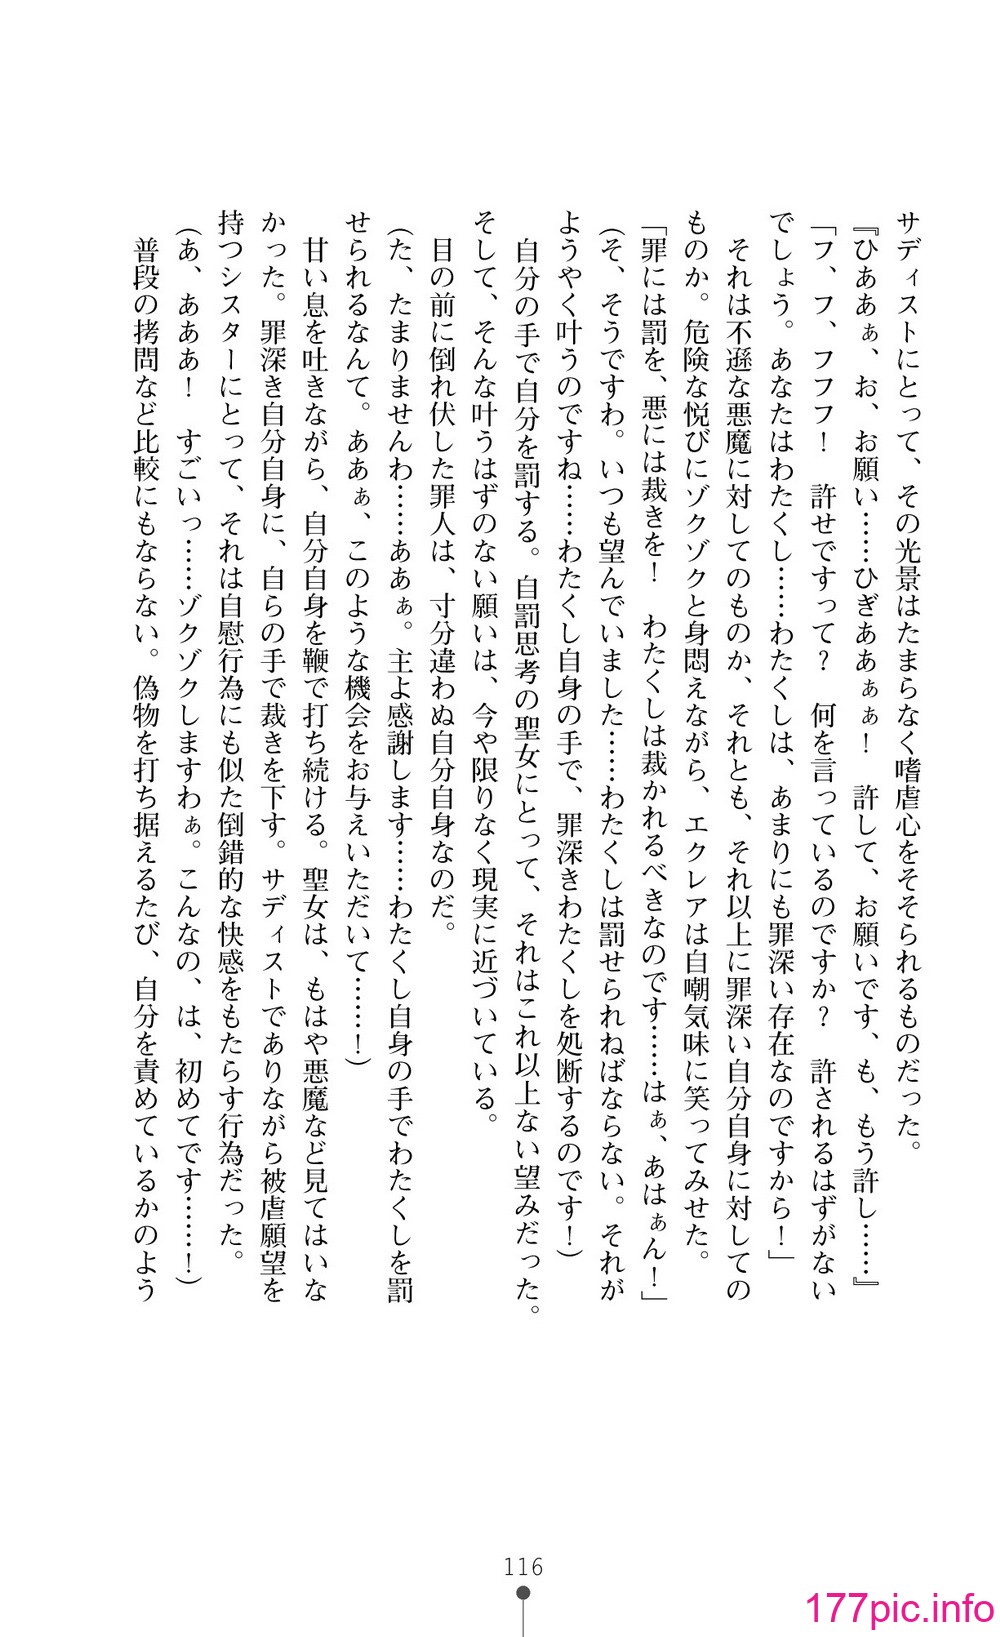 サディストにとって、その光景はたまらなく嗜虐心をそそられるものだった。
『ひあぁぁ、お、お願い……ひぎあぁぁぁ！　許して、お願いです、も、もう許し……』
「フ、フ、フフフ！　許せですって？　何を言っているのですか？　許されるはずがない
でしょう。あなたはわたくし……わたくしは、あまりにも罪深い存在なのですから！」
　それは不遜な悪魔に対してのものか、それとも、それ以上に罪深い自分自身に対しての
ものか。危険な悦びにゾクゾクと身悶えながら、エクレアは自嘲気味に笑ってみせた。
「罪には罰を、悪には裁きを！　わたくしは裁かれるべきなのです……はぁ、あはぁん！」
（そ、そうですわ。いつも望んでいました……わたくしは罰せられねばならない。それが
ようやく叶うのですね……わたくし自身の手で、罪深きわたくしを処断するのです！）
　自分の手で自分を罰する。自罰思考の聖女にとって、それはこれ以上ない望みだった。
そして、そんな叶うはずのない願いは、今や限りなく現実に近づいている。
　目の前に倒れ伏した罪人は、寸分違わぬ自分自身なのだ。
（た、たまりませんわ……あぁぁ。主よ感謝します……わたくし自身の手でわたくしを罰
せられるなんて。あぁぁ、このような機会をお与えいただいて……！）
　甘い息を吐きながら、自分自身を鞭で打ち続ける。聖女は、もはや悪魔など見てはいな
かった。罪深き自分自身に、自らの手で裁きを下す。サディストでありながら被虐願望を
持つシスターにとって、それは自慰行為にも似た倒錯的な快感をもたらす行為だった。
（あ、あああ！　すごいっ……ゾクゾクしますわぁ。こんなの、は、初めてです……！）
　普段の拷問など比較にもならない。偽物を打ち据えるたび、自分を責めているかのよう
116
177pic.info